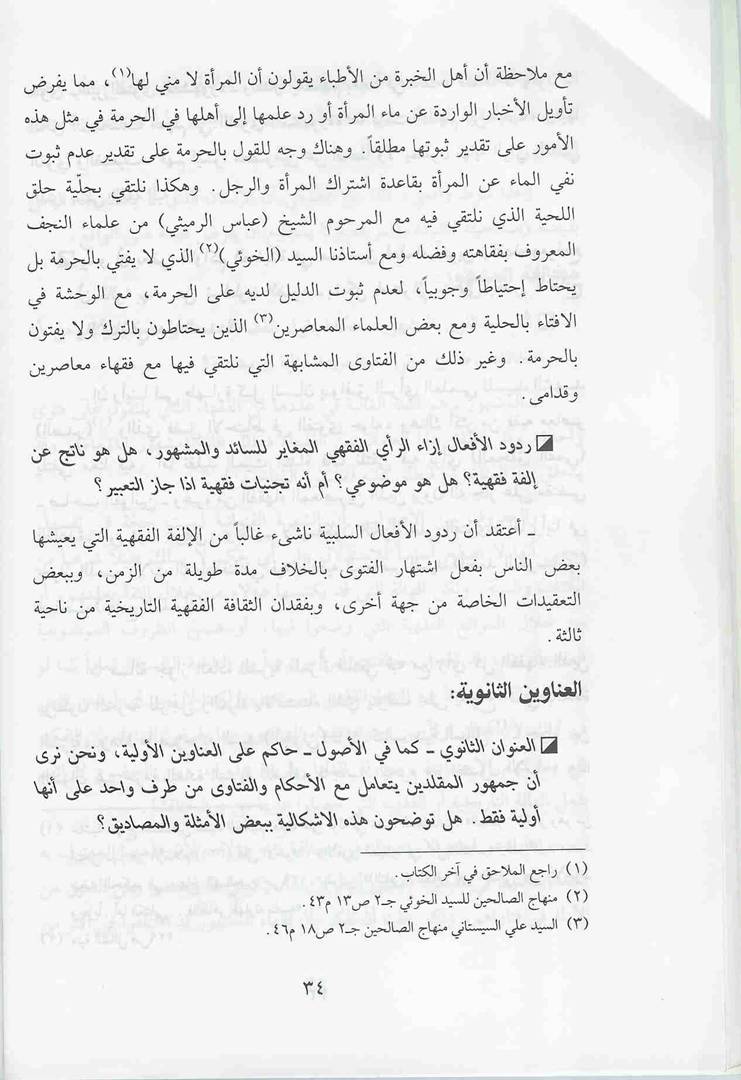 مع ملاحظة أن أهل الخبرة من الأطباء يقولون أن المرأة لا مني لها(١)، مما يفرض
تأويل الأخبار الواردة عن ماء المرأة أو رد علمها إلى أهلها في الحرمة في مثل هذه
الأمور على تقدير ثبوتها مطلقاً. وهناك وجه للقول بالحرمة على تقدير عدم ثبوت
نفي الماء عن المرأة بقاعدة اشتراك المرأة والرجل. وهكذا نلتقي بحلّية حلق
اللحية الذي نلتقي فيه مع المرحوم الشيخ (عباس الرميثي) من علماء النجف
المعروف بفقاهته وفضله ومع أستاذنا السيد (الخوئي)(٢) الذي لا يفتي بالحرمة بل
يحتاط إحتياطاً وجوبياً، لعدم ثبوت الدليل لديه على الحرمة، مع الوحشة في
الافتاء بالحلية ومع بعض العلماء المعاصرين(٣) الذين يحتاطون بالترك ولا يفتون
بالحرمة. وغير ذلك من الفتاوى المشابهة التي نلتقي فيها مع فقهاء معاصرين
وقدامى.
ردود الأفعال إزاء الرأي الفقهي المغاير للسائد والمشهور، هل هو ناتج عن
إلفة فقهية؟ هل هو موضوعي؟ أم أنه تجنبات فقهية اذا جاز التعبير؟
ـ أعتقد أن ردود الأفعال السلبية ناشىء غالباً من الإلفة الفقهية التي يعيشها
بعض الناس بفعل اشتهار الفتوى بالخلاف مدة طويلة من الزمن، وببعض
التعقيدات الخاصة من جهة أخرى، وبفقدان الثقافة الفقهية التاريخية من ناحية
ثالثة.
العناوين الثانوية:
العنوان الثانوي ـ كما في الأصول ـ حاكم على العناوين الأولية، ونحن نرى
أن جمهور المقلدين يتعامل مع الأحكام والفتاوى من طرف واحد على أنها
أولية فقط. هل توضحون هذه الاشكالية ببعض الأمثلة والمصاديق؟
(١) راجع الملاحق في آخر الكتاب.
(٢) منهاج الصالحين للسيد الخوئي جـ٢ ص١٣ م٤٣.
(٣) السيد علي السيستاني منهاج الصالحين جـ٢ ص١٨ م٤٦.
٣٤